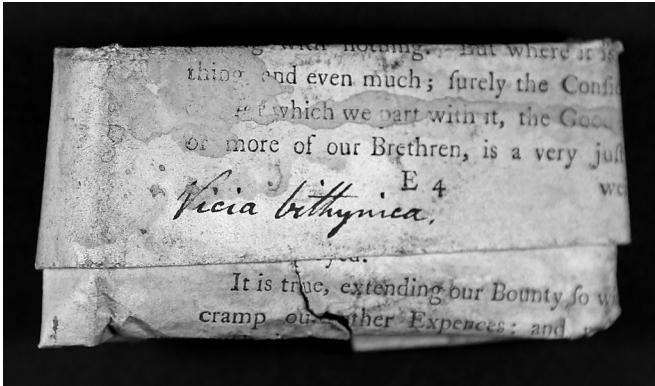 with nothing. But where it is
thing and even much; ſurely the Conſi
which we part with it, the Good
or more of our Brethren, is a very juſt
E 4 we
Vicia bithynica.
It is true, extending our Bounty ſo w
cramp our other Expences: and